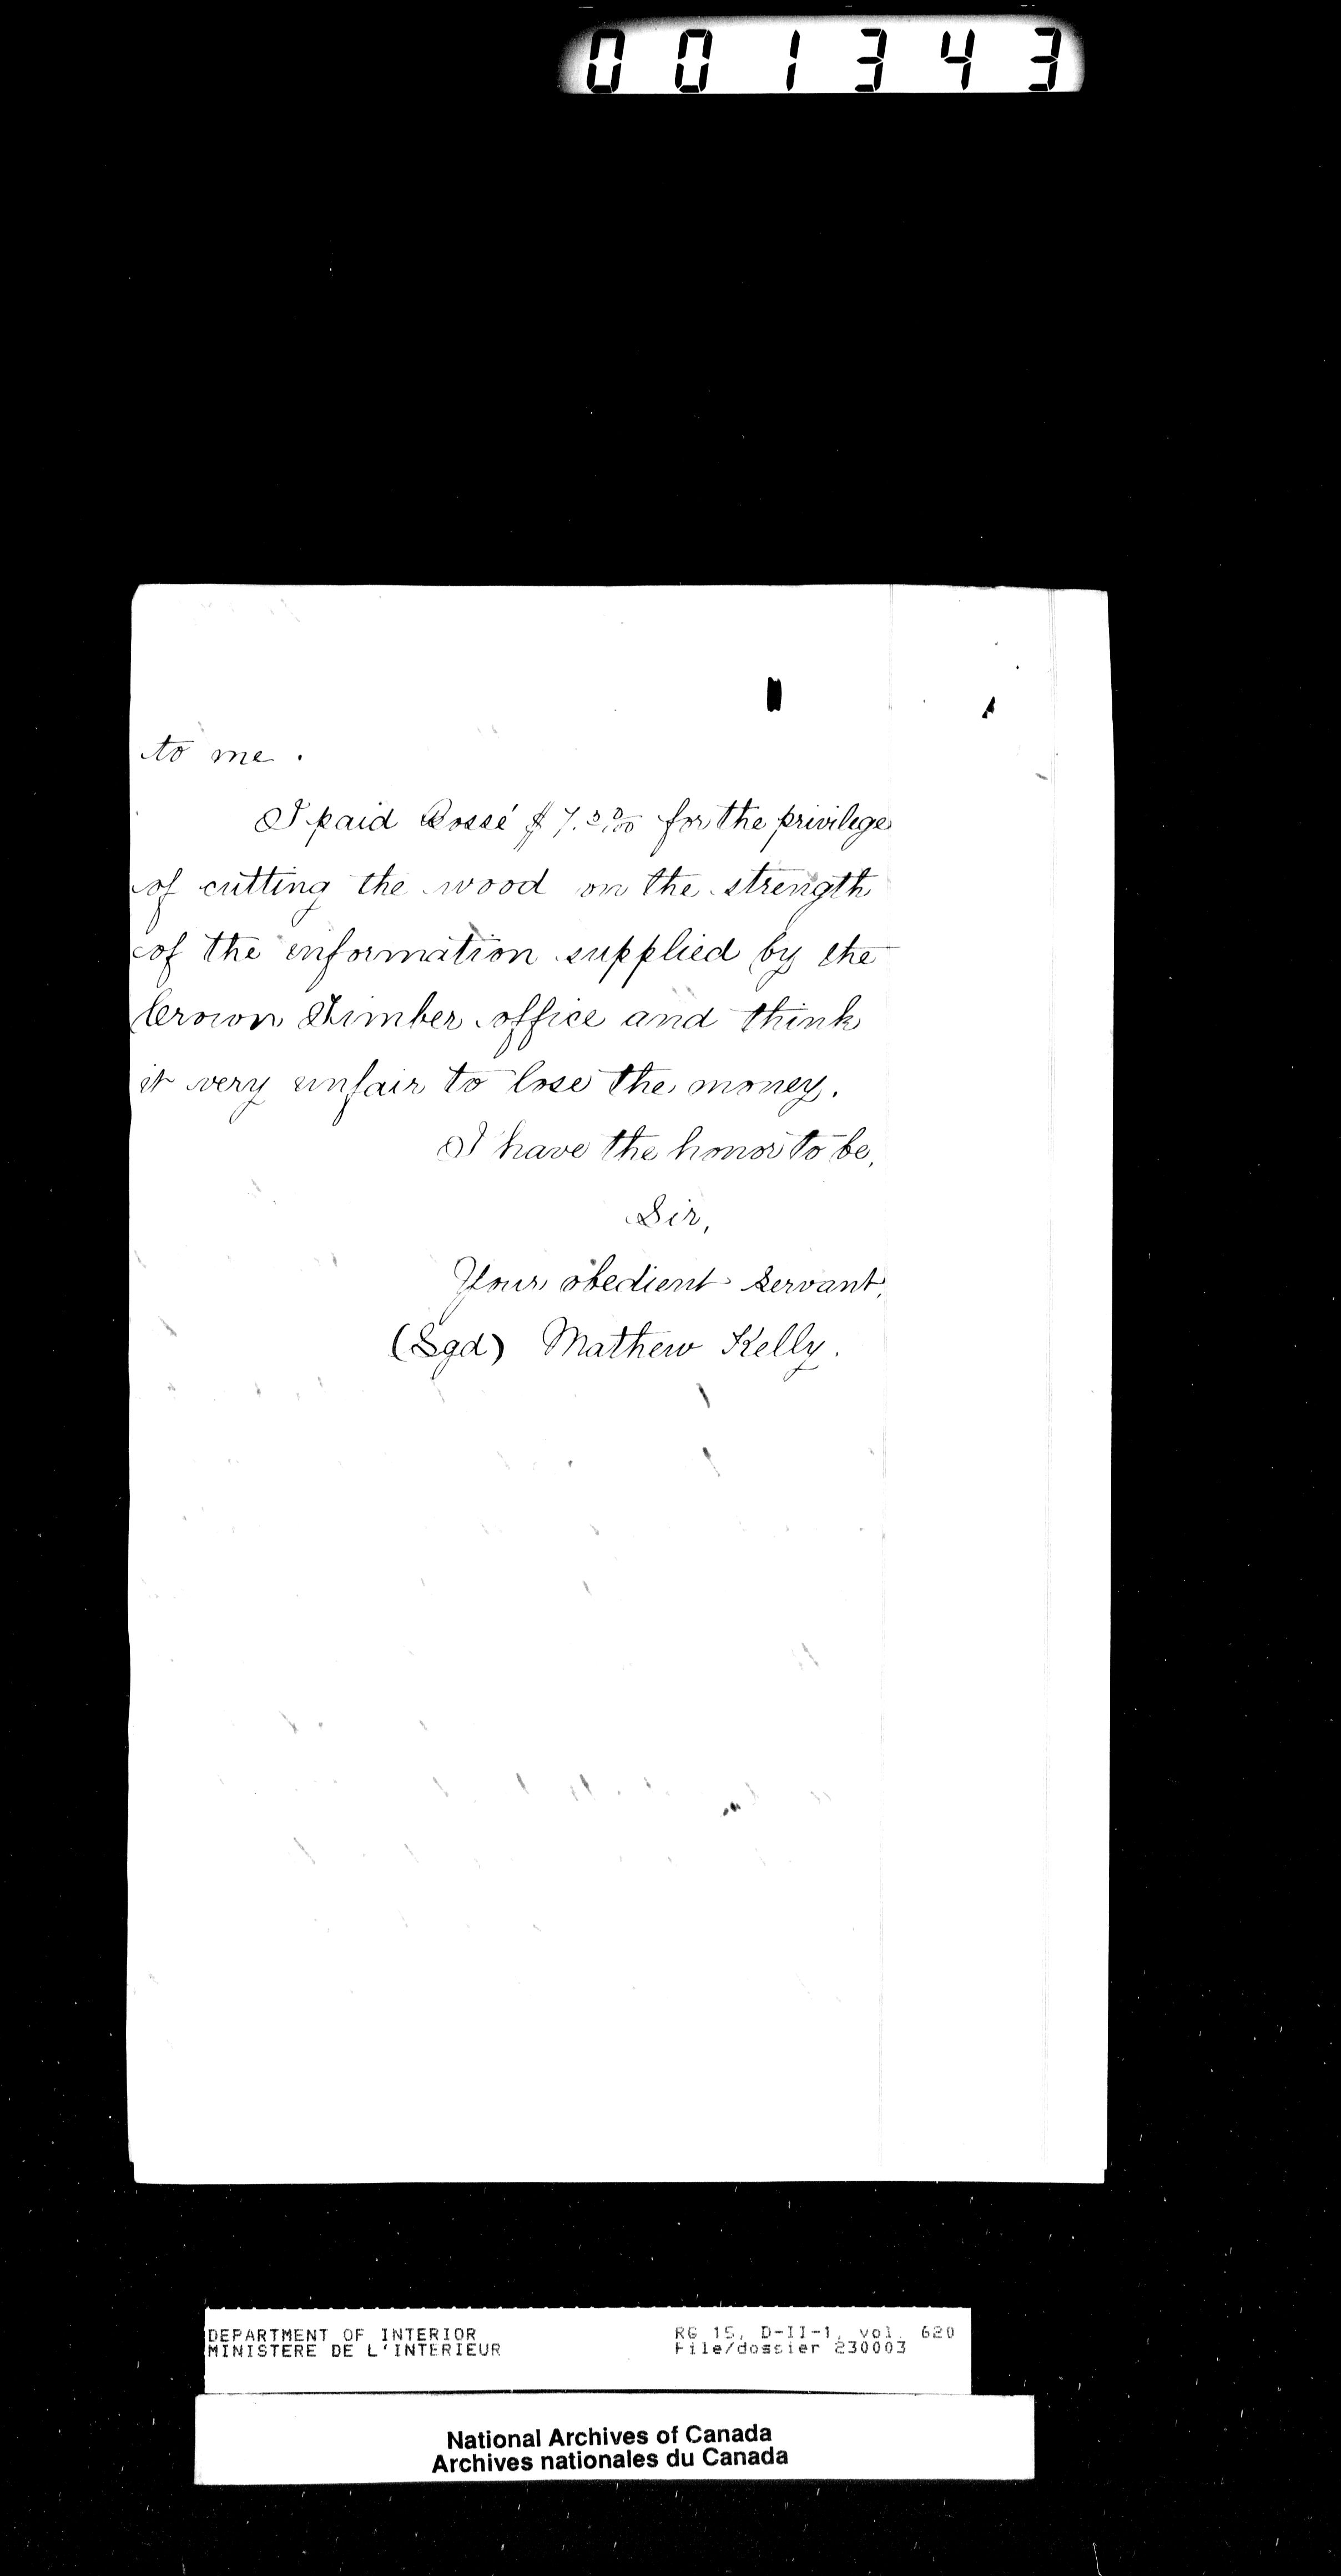 001343
to me.
I paid Bossé $7.50/100 for the privilege
of cutting the wood on the strength
of the information supplied by the
Crown Timber office and think
it very unfair to lose the money.
I have the honor to be,
Sir,
Your obedient servant,
(Sgd) Mathew Kelly.
DEPARTMENT OF INTERIOR RG 15, D-II-1, vol. 620
MINISTERE DE L'INTERIEUR File/dossier 230003
National Archives of Canada
Archives nationales du Canada